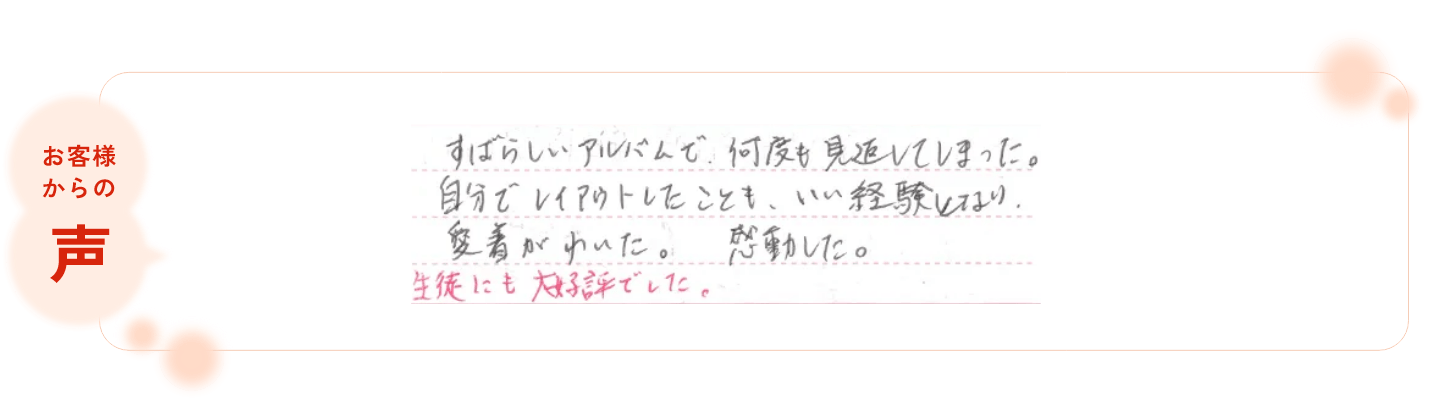 お客様
からの
声
すばらしいアルバムで、何度も見返してしまった。
自分でレイアウトしたことも、いい経験となり、
愛着がわいた。 感動した。
生徒にも大好評でした。